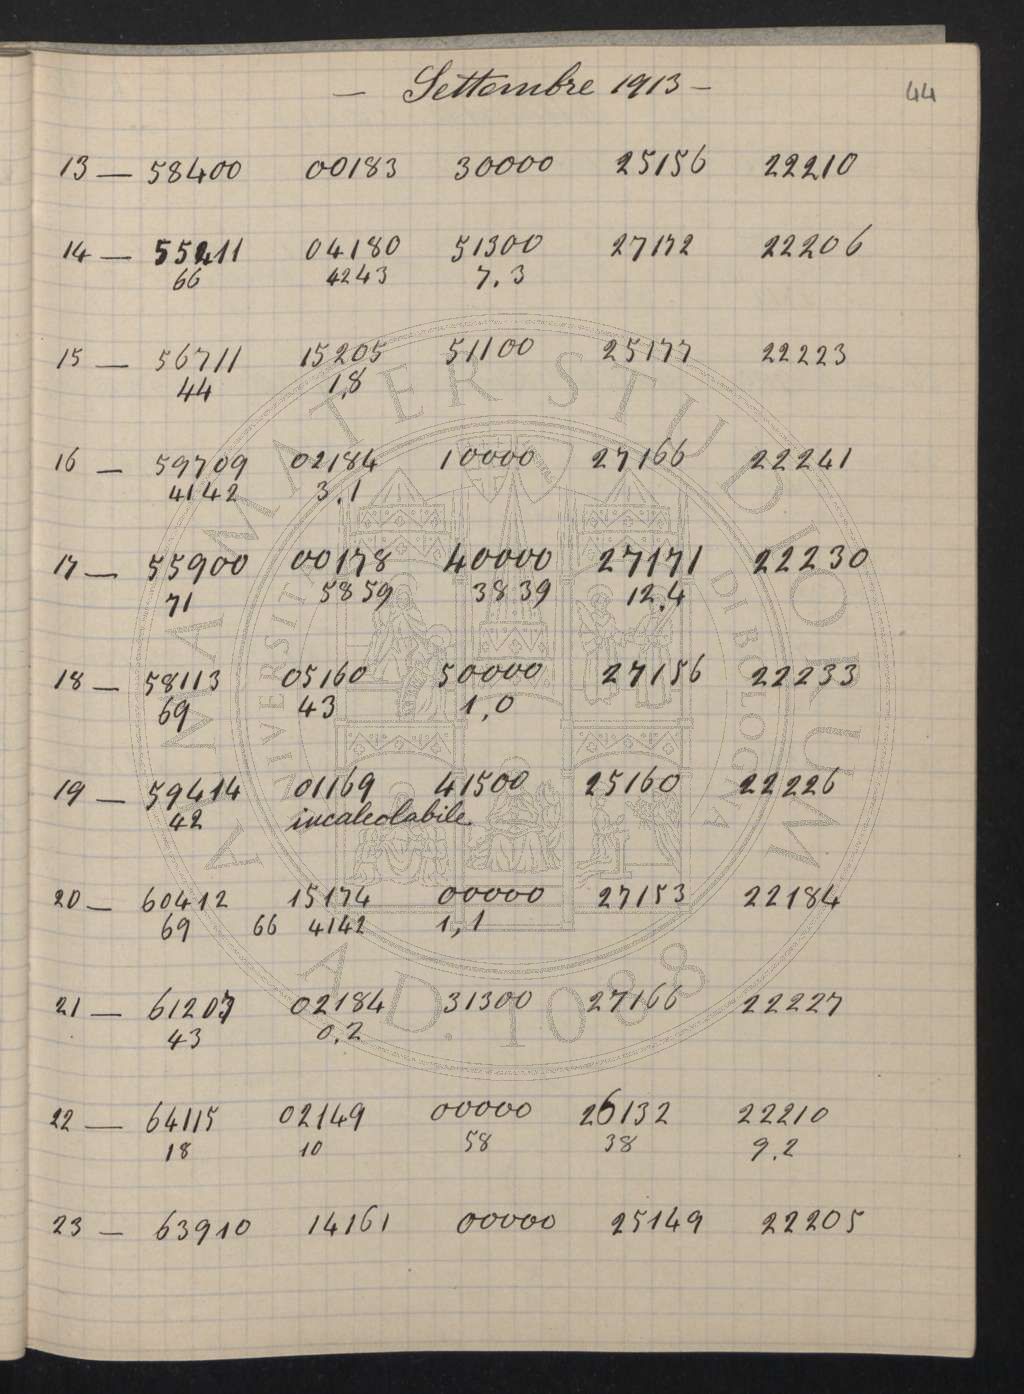 — Settembre 1913 —
44
13 — 58400 00183 30000 25156 22210
14 — 55211 04180 51300 27172 22206
66 4243 7.3
15 — 56711 15205 51100 25177 22223
44 1.8
16 — 59709 02184 10000 27166 22241
4142 3.1
17 — 55900 00178 40000 27171 22230
71 5859 3839 12.4
18 — 58113 05160 50000 27156 22233
69 43 1,0
19 — 59414 01169 41500 25160 22226
42 incalcolabile
20 — 60412 15174 00000 27153 22184
69 66 4142 1,1
21 — 61207 02184 31300 27166 22227
43 0.2
22 — 64115 02149 00000 26132 22210
18 10 58 38 9.2
23 — 63910 14161 00000 25149 22205
ALMA MATER STUDIORUM
UNIVERSITÀ DI BOLOGNA
A.D. 1088